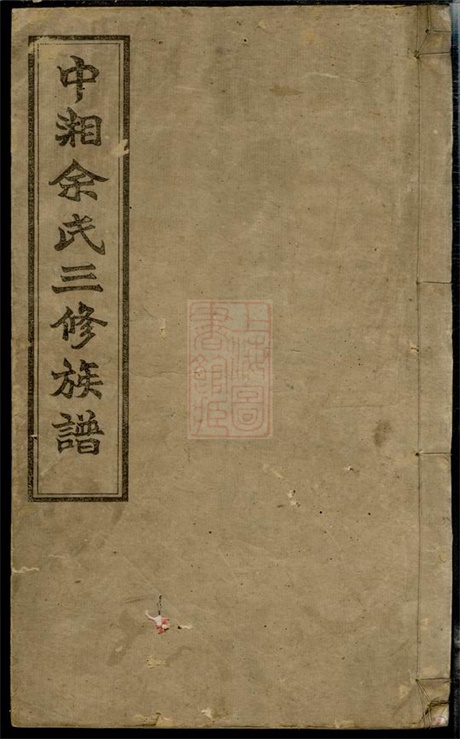 中湘余氏三修族譜
上海圖
書館藏